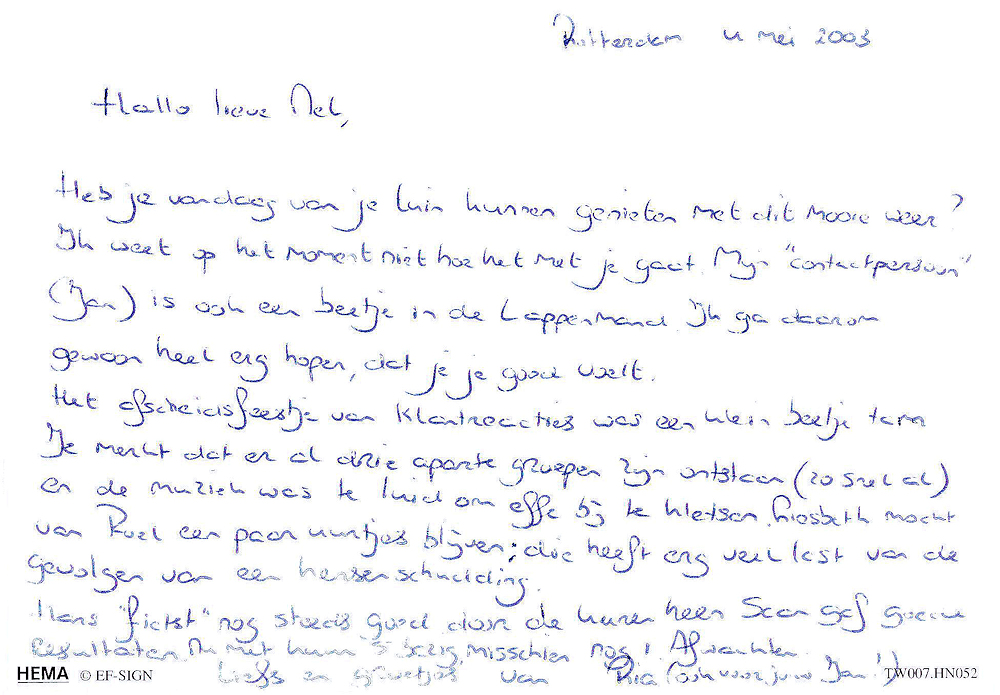 Rotterdam 4 mei 2003
Hallo lieve Nel,
Heb je vandaag van je tuin kunnen genieten met dit mooie weer?
Ik weet op het moment niet hoe het met je gaat. Mijn "contactpersoon"
(Jan) is ook een beetje in de Lappenmand. Ik ga daarom
gewoon heel erg hopen, dat je je goed voelt.
Het afscheidsfeestje van Klantreacties was een klein beetje tam
Je merkt dat er al drie aparte groepen zijn ontstaan (zo snel al)
en de muziek was te luid om effe bij te kletsen. Liesbeth mocht
van Roel een paar uurtjes blijven; die heeft erg veel last van de
gevolgen van een hersenschudding.
Hans "fietst" nog steeds goed door de kuren heen Scan gaf goede
resultaten. Nu met kuur 5 bezig, misschien nog 1 Afwachten.
Liefs en groetjes van Ria (ook voor jouw Jan!)
HEMA © EF-SIGN
TW007.HN052